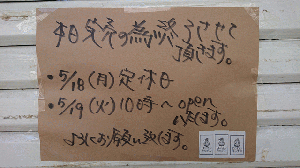 本日完売の為終了させて
頂きます。
・5/18(月)定休日
・5/19(火)10時〜open
致します。
よろしくお願い致します。